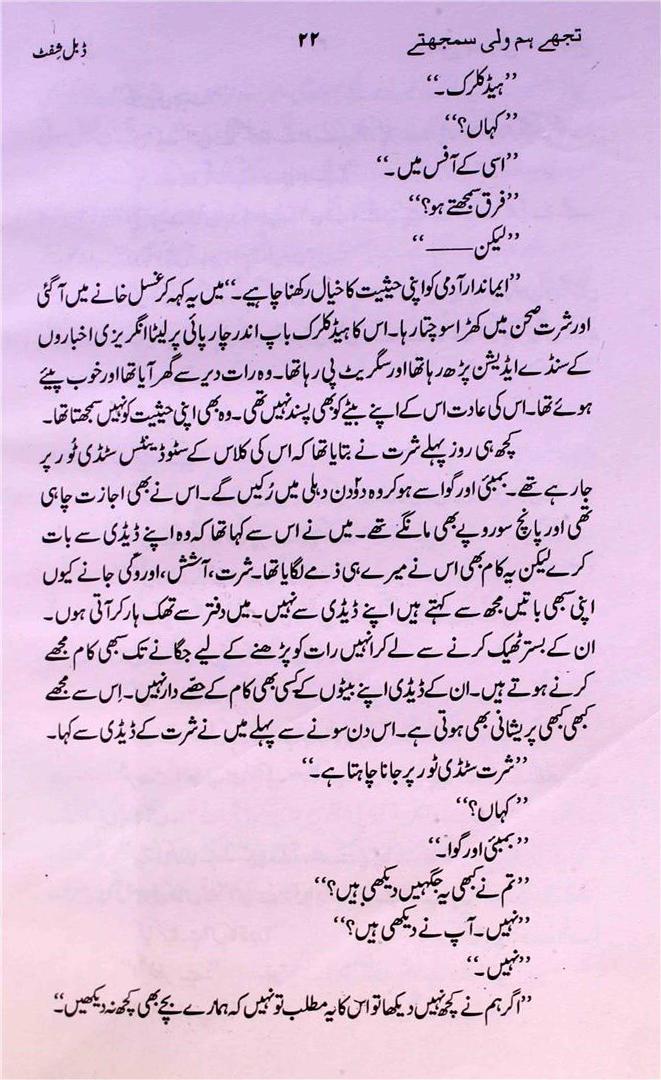 تجھے ہم ولی سمجھتے ۲۲ ڈبل شفٹ
”ہیڈ کلرک۔“
”کہاں؟“
”اسی کے آفس میں۔“
”فرق سمجھتے ہو؟“
”لیکن ——“
”ایماندار آدمی کو اپنی حیثیت کا خیال رکھنا چاہیے۔“ میں یہ کہہ کر غسل خانے میں آ گئی
اور شرت صحن میں کھڑا سوچتا رہا۔ اس کا ہیڈ کلرک باپ اندر چارپائی پر لیٹا انگریزی اخباروں
کے سنڈے ایڈیشن پڑھ رہا تھا اور سگریٹ پی رہا تھا۔ وہ رات دیر سے گھر آیا تھا اور خوب پیئے
ہوئے تھا۔ اس کی عادت اس کے اپنے بیٹے کو بھی پسند نہیں تھی۔ وہ بھی اپنی حیثیت کو نہیں سمجھتا تھا۔
کچھ ہی روز پہلے شرت نے بتایا تھا کہ اس کی کلاس کے سٹوڈینٹس سٹڈی ٹور پر
جا رہے تھے۔ بمبئی اور گوا سے ہو کر وہ دو دن دہلی میں رُکیں گے۔ اس نے بھی اجازت چاہی
تھی اور پانچ سو روپے بھی مانگے تھے۔ میں نے اس سے کہا تھا کہ وہ اپنے ڈیڈی سے بات
کرے لیکن یہ کام بھی اس نے میرے ہی ذمے لگایا تھا۔ شرت، آشش، اور وکی جانے کیوں
اپنی سبھی باتیں مجھ سے کہتے ہیں اپنے ڈیڈی سے نہیں۔ میں دفتر سے تھک ہار کر آتی ہوں۔
ان کے بستر ٹھیک کرنے سے لے کر انہیں رات کو پڑھنے کے لیے جگانے تک سبھی کام مجھے
کرنے ہوتے ہیں۔ ان کے ڈیڈی اپنے بیٹوں کے کسی بھی کام کے حصّے دار نہیں۔ اِس سے مجھے
کبھی کبھی پریشانی بھی ہوتی ہے۔ اس دن سونے سے پہلے میں نے شرت کے ڈیڈی سے کہا۔
”شرت سٹڈی ٹور پر جانا چاہتا ہے۔“
”کہاں؟“
”بمبئی اور گوا۔“
”تم نے کبھی یہ جگہیں دیکھی ہیں؟“
”نہیں۔ آپ نے دیکھی ہیں؟“
”نہیں۔“
”اگر ہم نے کچھ نہیں دیکھا تو اس کا یہ مطلب تو نہیں کہ ہمارے بچے بھی کچھ نہ دیکھیں۔“